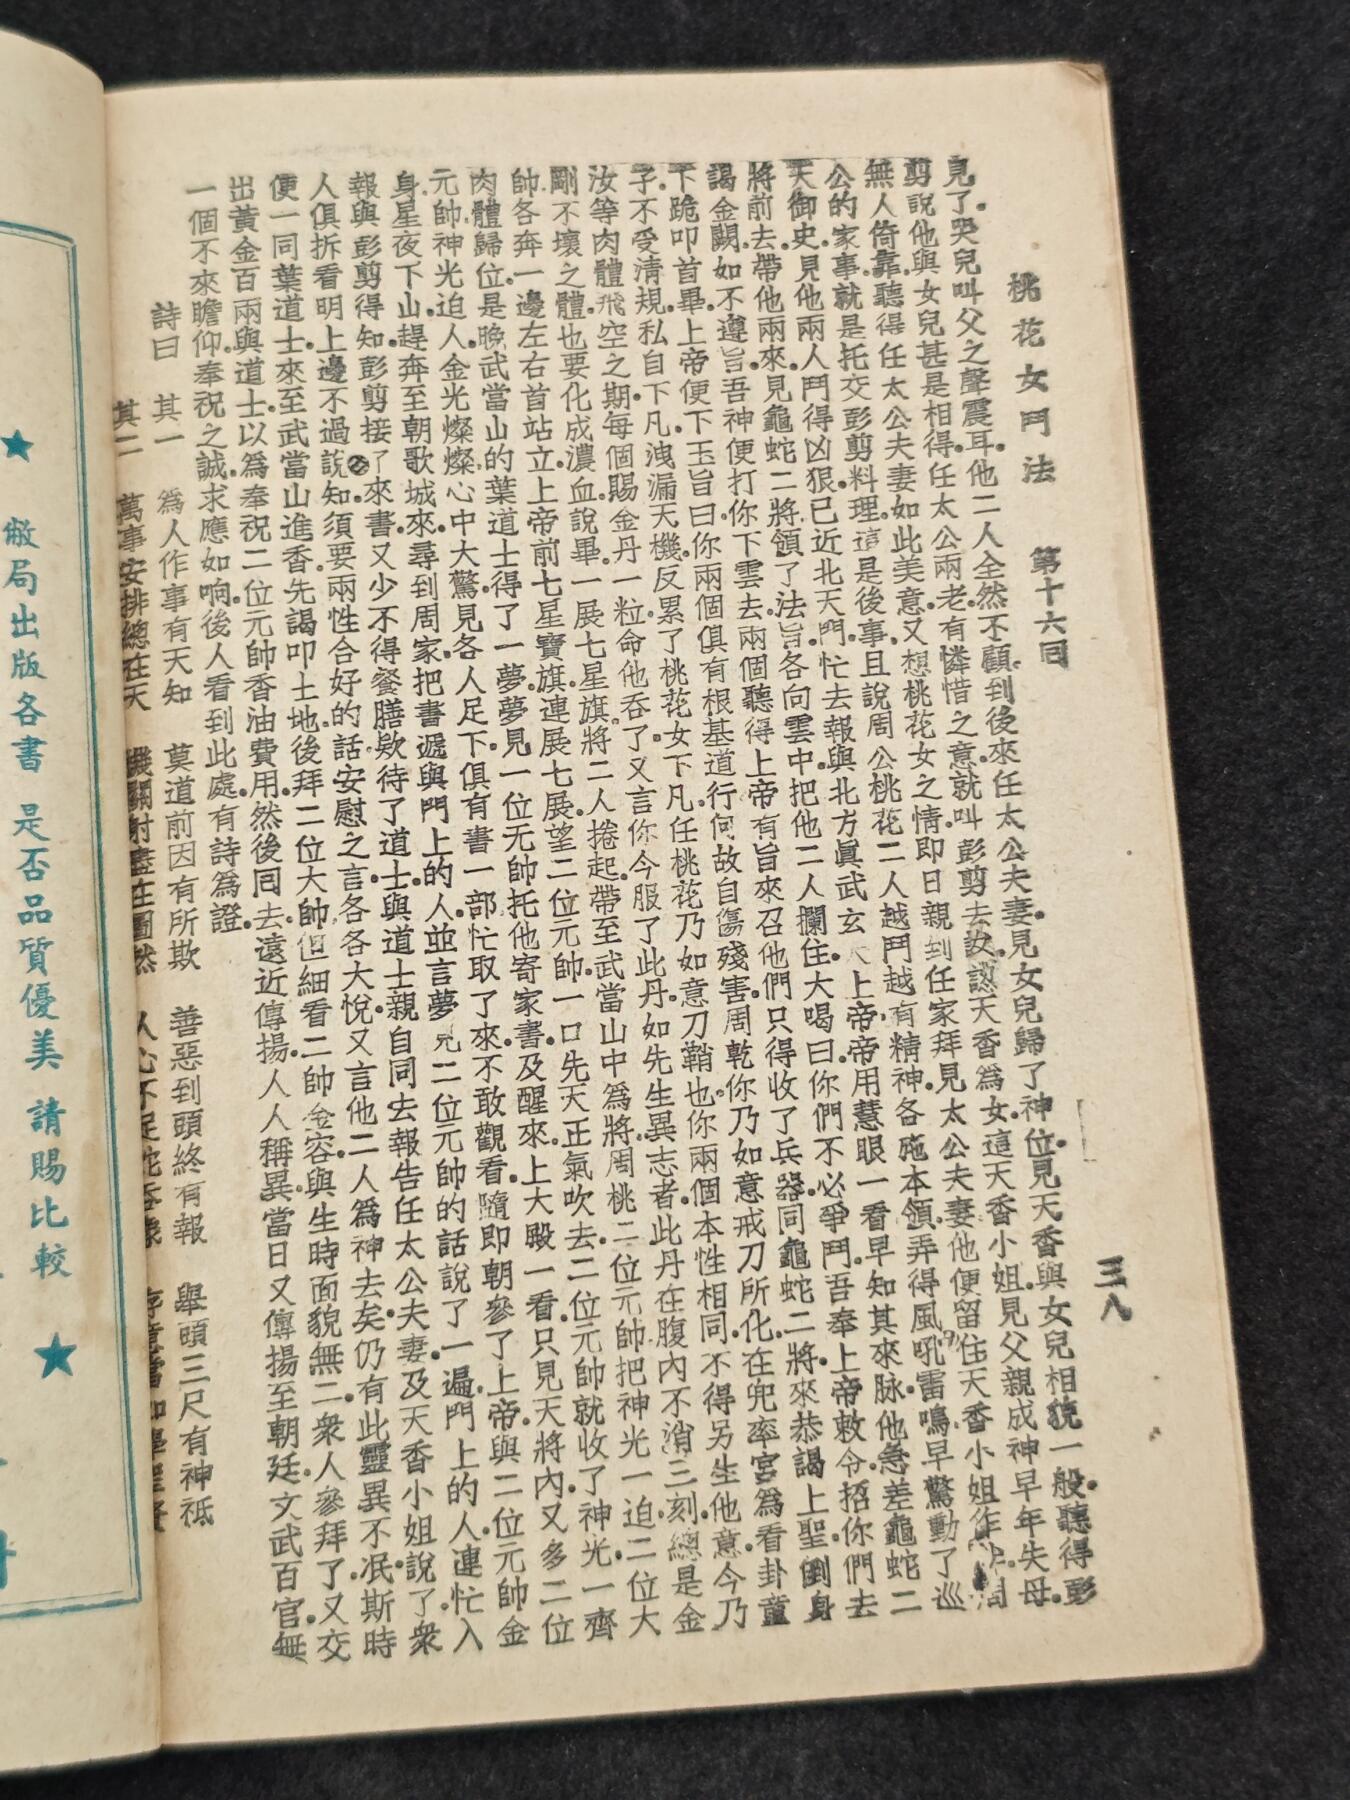 桃花女鬥法 第十六回 三八
見了.哭兒叫父之聲震耳.他二人全然不顧.到後來任太公夫妻.見女兒歸了神位.見天香與女兒相貌一般.聽得彭
剪說他與女兒甚是相得.任太公兩老.有憐惜之意.就叫彭剪去說.認天香為女.這天香小姐.見父親成神.早年失母.
無人倚靠.聽得任太公夫妻如此美意.又想桃花女之情.即日親到任家拜見太公夫妻.他便留住天香小姐作
公的家事.就是托交彭剪料理.這是後事.且說周公桃花.二人越鬥越有精神.各施本領.弄得風吼雷鳴.早驚動了巡
天御史.見他兩人鬥得凶狠.已近北天門.忙去報與北方眞武玄天上帝.帝用慧眼一看.早知其來脉.他急差龜蛇二
將前去.帶他兩來見.龜蛇二將領了法旨.各向雲中把他二人攔住.大喝曰.你們不必爭鬥.吾奉上帝敕令.招你們去
謁金闕.如不遵旨.吾神便打你下雲去.兩個聽得上帝有旨來召.他們只得收了兵器.同龜蛇二將來恭謁上聖.倒身
下跪叩首畢.上帝便下玉旨曰.你兩個俱有根基道行.何故自傷殘害.周乾.你乃如意戒刀所化.在兜率宮為看卦童
子.不受清規.私自下凡.洩漏天機.反累了桃花女下凡.任桃花乃如意刀鞘也.你兩個本性相同.不得另生他意.今乃
汝等肉體飛空之期.每個賜金丹一粒.命他吞了.又言你今服了此丹.如先生異志者.此丹在腹內.不消三刻.總是金
剛不壞之體.也要化成濃血.說畢.一展七星旗.將二人捲起.帶至武當山中為將.周桃二位元帥.把神光一迫.二位大
帥.各奔一邊.左右首站立.上帝前七星寶旗.連展七展.望二位元帥一口先天正氣吹去.二位元帥.就收了神光.一齊
肉體歸位.是晚武當山的葉道士.得了一夢.夢見一位元帥.托他寄家書.及醒來.上大殿一看.只見天將內.又多二位
元帥.神光迫人.金光燦燦.心中大驚.見各人足下.俱有書一部.忙取了來.不敢觀看.隨即朝參了上帝.與二位元帥金
身.星夜下山.趕奔至朝歌城來.尋到周家.把書遞與門上的人.並言夢見二位元帥的話.說了一遍.門上的人連忙入
報與彭剪得知.彭剪接了來書.又少不得餐膳欵待了道士.與道士親自同去.報告任太公夫妻.及天香小姐.說了.衆
人俱拆看明.上邊不過說知.須要兩性合好的話.安慰之言.各各大悅.又言他二人為神去矣.仍有此靈異不泯.斯時
便一同葉道士.來至武當山進香.先謁叩土地.後拜二位大帥.但細看二帥金容.與生時面貌無二.衆人參拜了.又交
出黃金百兩.與道士以為奉祝二位元帥香油費用.然後回去.遠近傳揚.人人稱異.當日又傳揚至朝廷.文武百官.無
一個不來瞻仰.奉祝之誠.求應如响.後人看到此處.有詩為證.
詩曰 其一 為人作事有天知 莫道前因有所欺 善惡到頭終有報 舉頭三尺有神祗
其二 萬事安排總在天 機關
★ 敝局出版各書 是否品質優美 請賜比較 ★